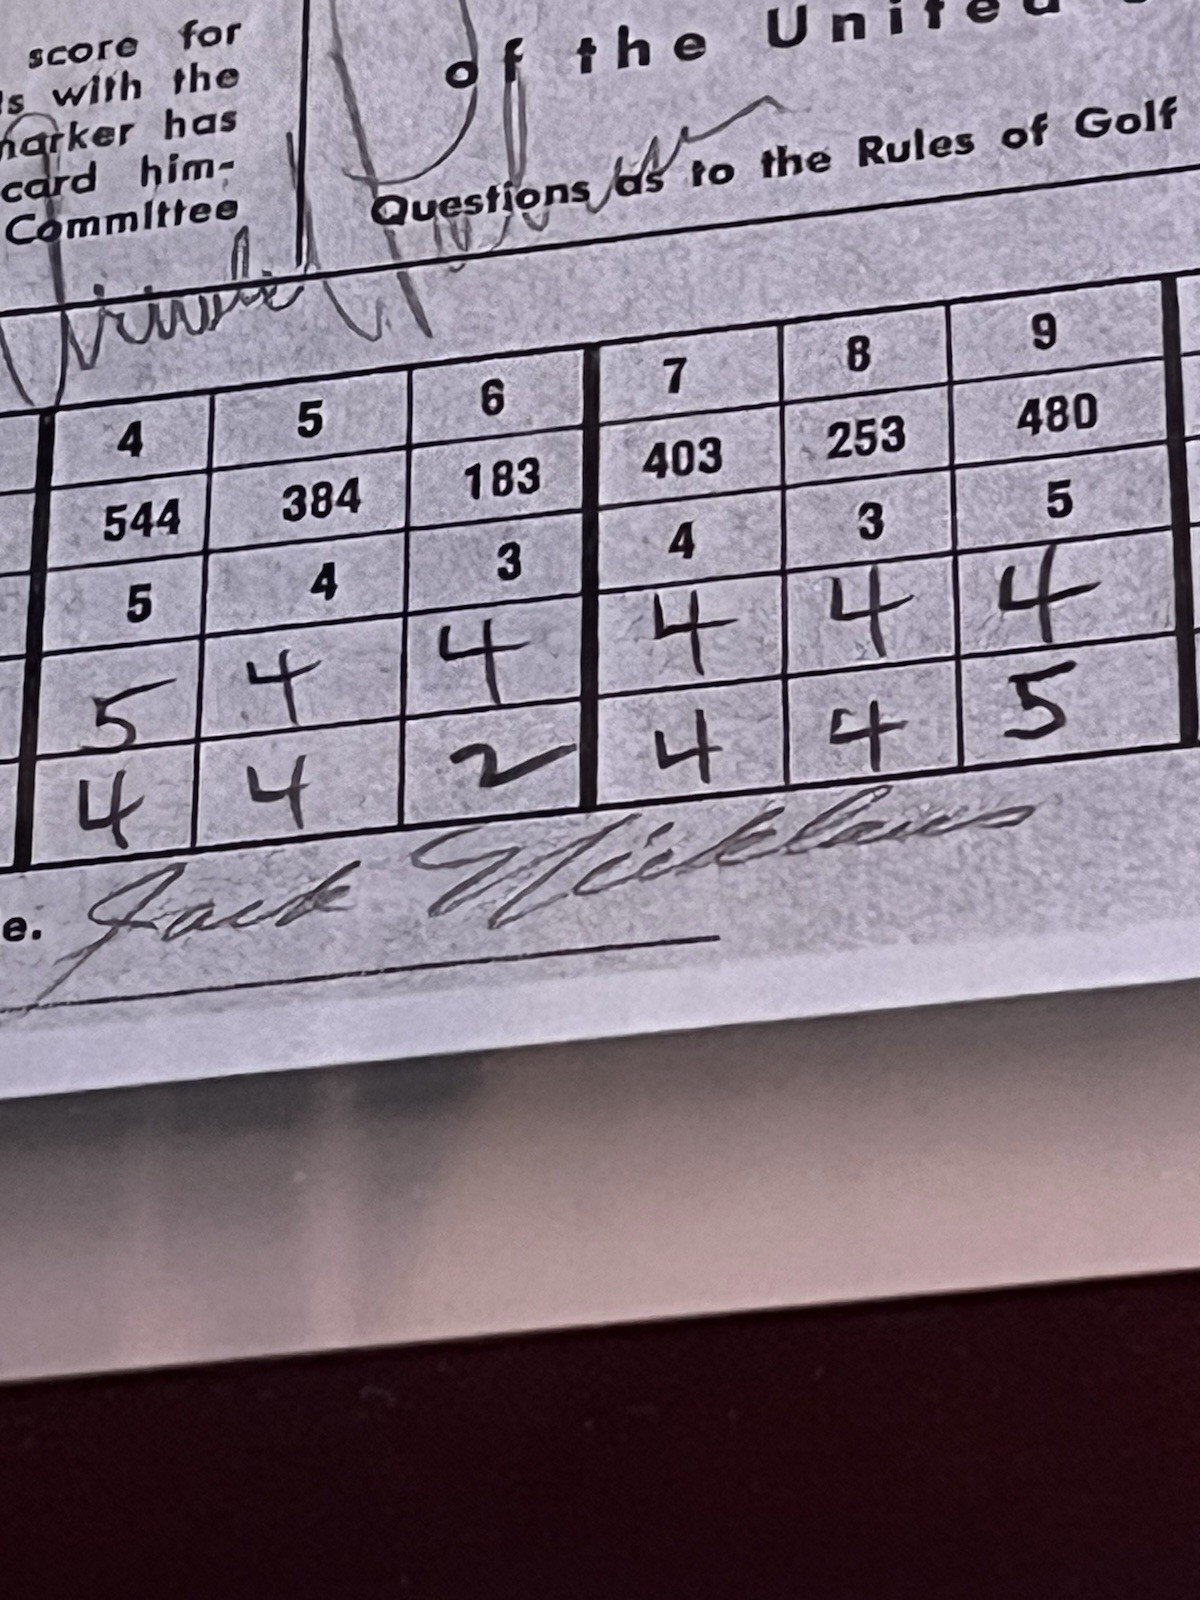 score for
with the
marker has
card him-
Committee
of the United
Questions as to the Rules of Golf
4 5 6 7 8 9
544 384 183 403 253 480
5 4 3 4 3 5
5 4 4 4 4 4
4 4 2 4 4 5
e. Jack Nicklaus